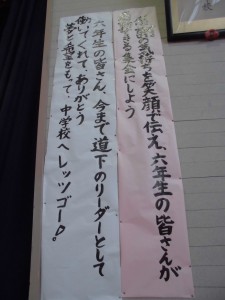 気持ちを笑顔で伝え、六年生の皆さんが
できる集会にしよう
六年生の皆さん、今まで道下のリーダーとして
働いてくれて、ありがとう
夢と希望をもって、中学校へレッツゴー!